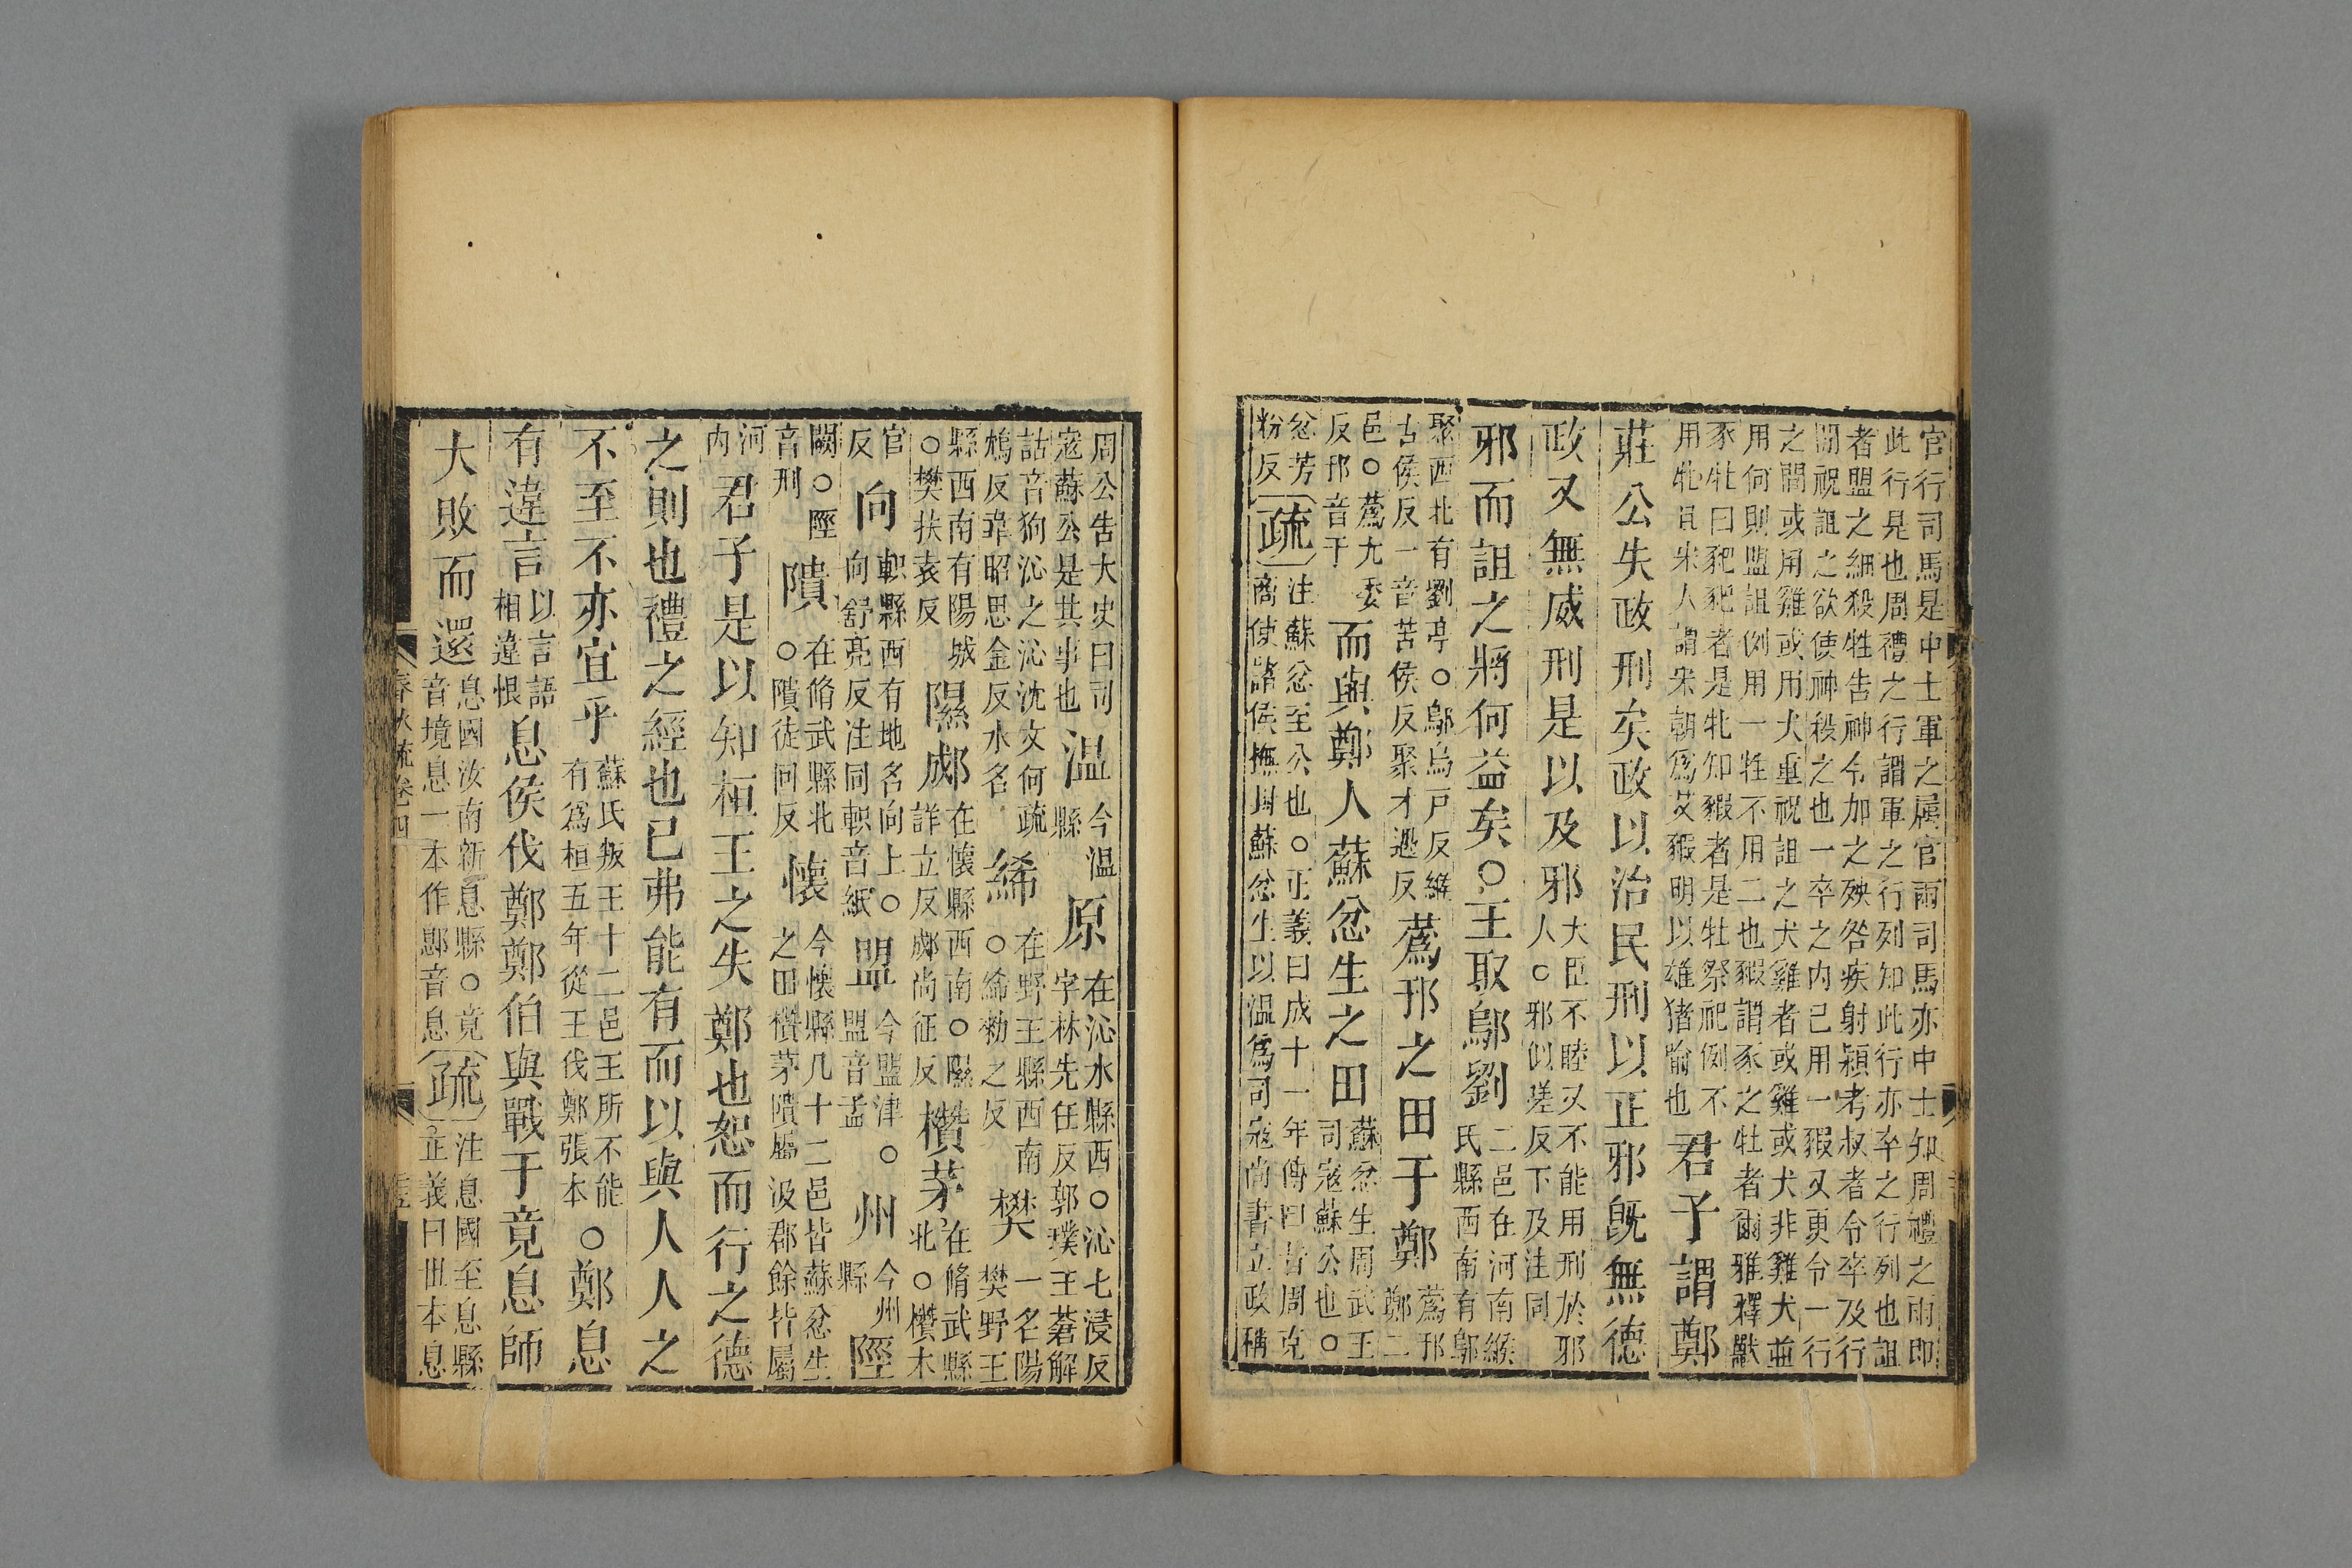 官行司馬是中士軍之屬官兩司馬亦中士知周禮之兩即
此行是也周禮之行謂軍之行列知此行亦卒之行列也詛
者盟之細殺牲告神令加之殃咎疾射頴考叔者令卒及行
間祝詛之欲使神殺之也一卒之內已用一豭又更令一行
之間或用雞或用犬重祝詛之犬雞者或雞或犬非雞犬並
用何則盟詛例用一牲不用二也豭謂豕之牡者爾雅釋獸
豕牝曰豝豝者是牝知豭者是牡祭祀例不
用牝且宋人謂宋朝爲艾豭明以雄猪喻也
君子謂鄭
莊公失政刑矣政以治民刑以正邪旣無德
政又無威刑是以及邪
大臣不睦又不能用刑於邪
人○邪似嗟反下及注同
邪而詛之將何益矣○王取鄔劉
二邑在河南緱
氏縣西南有鄔
聚西北有劉亭○鄔烏戸反緱
古侯反一音苦侯反聚才遇反
蒍邘之田于鄭
蒍邘
鄭二
邑○蒍尤委
反邘音于
而與鄭人蘇忿生之田
蘇忿生周武王
司寇蘇公也○
忿芳
粉反
疏
注蘇忿至公也○正義曰成十一年傳曰昔周克
商使諸侯撫封蘇忿生以溫爲司寇尚書立政稱
周公告大史曰司
寇蘇公是其事也
温
今温
縣
原
在沁水縣西○沁七浸反
字林先任反郭璞王蒼解
詁音狗沁之沁沈文何疏
鴆反韋昭思金反水名
絺
在野王縣西南
○絺勑之反
樊
一名陽
樊野王
縣西南有陽城
○樊扶袁反
隰郕
在懷縣西南○隰
詳立反郕尚征反
欑茅
在脩武縣
北○欑木
官
反
向
軹縣西有地名向上○
向舒亮反注同軹音紙
盟
今盟津○
盟音孟
州
今州
縣
陘
闕○陘
音刑
隤
在脩武縣北
○隤徒回反
懷
今懷縣凡十二邑皆蘇忿生
之田欑茅隤屬汲郡餘皆屬
河
內
君子是以知桓王之失鄭也恕而行之德
之則也禮之經也已弗能有而以與人人之
不至不亦宜乎
蘇氏叛王十二邑王所不能
有爲桓五年從王伐鄭張本
○鄭息
有違言
以言語
相違恨
息侯伐鄭鄭伯與戰于竟息師
大敗而還
息國汝南新息縣○竟
音境息一本作鄎音息
疏
注息國至息縣
○正義曰世本息
春秋疏卷四